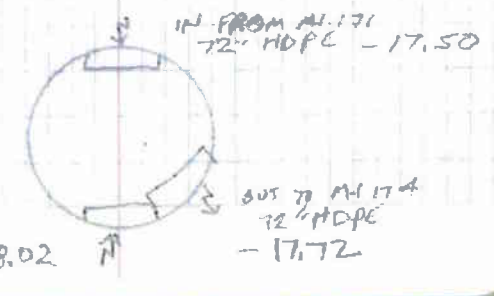 IN FROM MH 171
72" HDPE - 17.50
OUT TO MH 174
72" HDPE
- 17.72
8.02